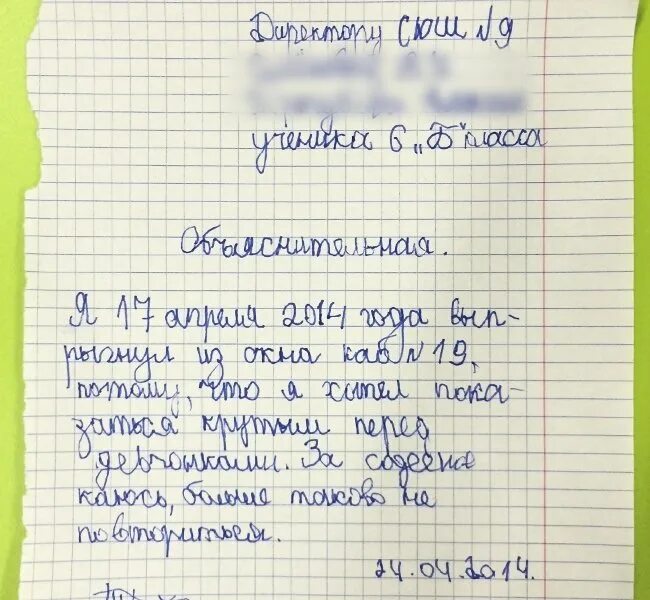 Директору СЮШ №9
ученика 6 „Б" класса
Объяснительная.
Я 17 апреля 2014 года вып-
рыгнул из окна каб №19,
потому, что я хотел пока-
заться крутым перед
девчонками. За содеена
каюсь, больше такова не
повториться.
24.04.2014.